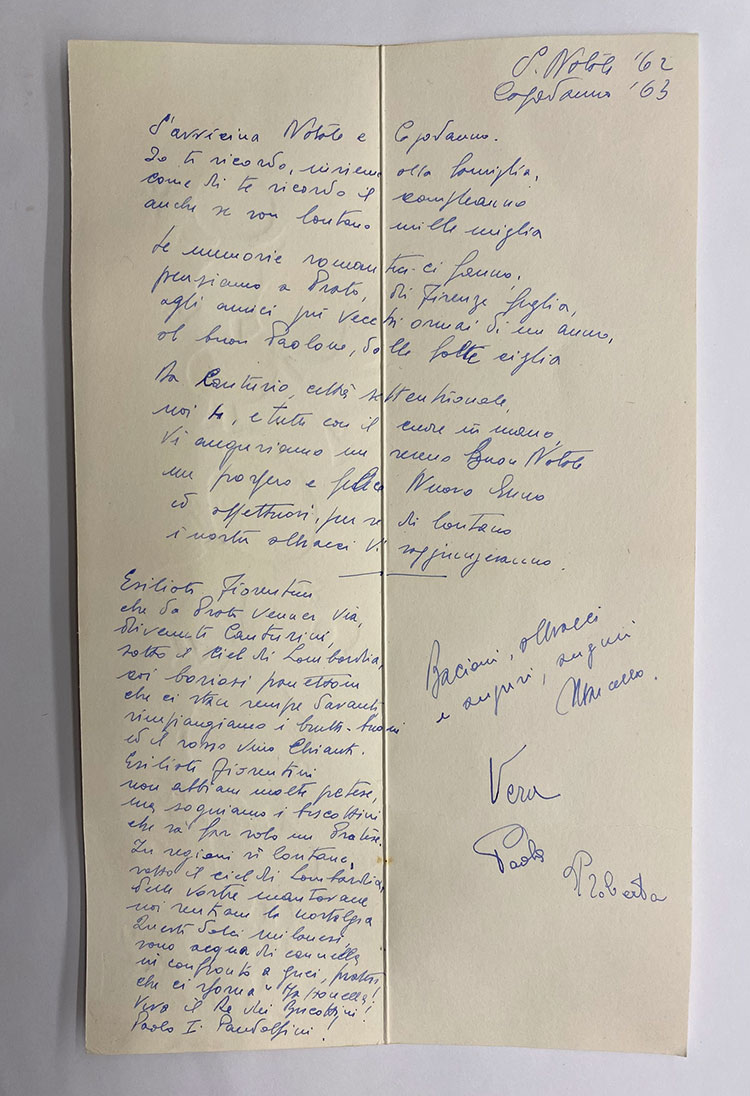 S. Natale '62
Capodanno '63
S'avvicina Natale e Capodanno.
Io ti ricordo, insieme alla famiglia,
come di te ricordo il compleanno
anche se son lontano mille miglia
Le memorie romantici fanno,
pensiamo a Prato, di Firenze figlia,
agli amici più vecchi ormai di un anno,
al buon Paolone, dalle folte ciglia
Da Canturio, città settentrionale,
noi 4, e tutti con il cuore in mano,
Vi auguriamo un sereno Buon Natale
un prospero e felice Nuovo Anno
ed affettuosi, pur se di lontano
i nostri abbracci Vi raggiungeranno.
Esiliati Fiorentini
che da Prato venner via,
divenuti Canturini,
sotto il ciel di Lombardia,
coi boriosi panettoni
che ci stan sempre davanti
rimpiangiamo i brutti-buoni
ed il rosso vino Chianti.
Esiliati Fiorentini
non abbiam molte pretese,
ma sogniamo i biscottini
che sa far solo un Pratese.
In regioni sì lontane,
sotto il ciel di Lombardia,
delle vostre mantovane
noi sentiam la nostalgia
Questi dolci milanesi,
sono acqua di cannella
in confronto a quei, pratesi
che ci sforna "Mattonella"!
Viva il Re dei Biscottini!
Paolo I. Pandolfini!
Bacioni, abbracci
e auguri, auguri
Marcello.
Vera
Paolo
Roberta